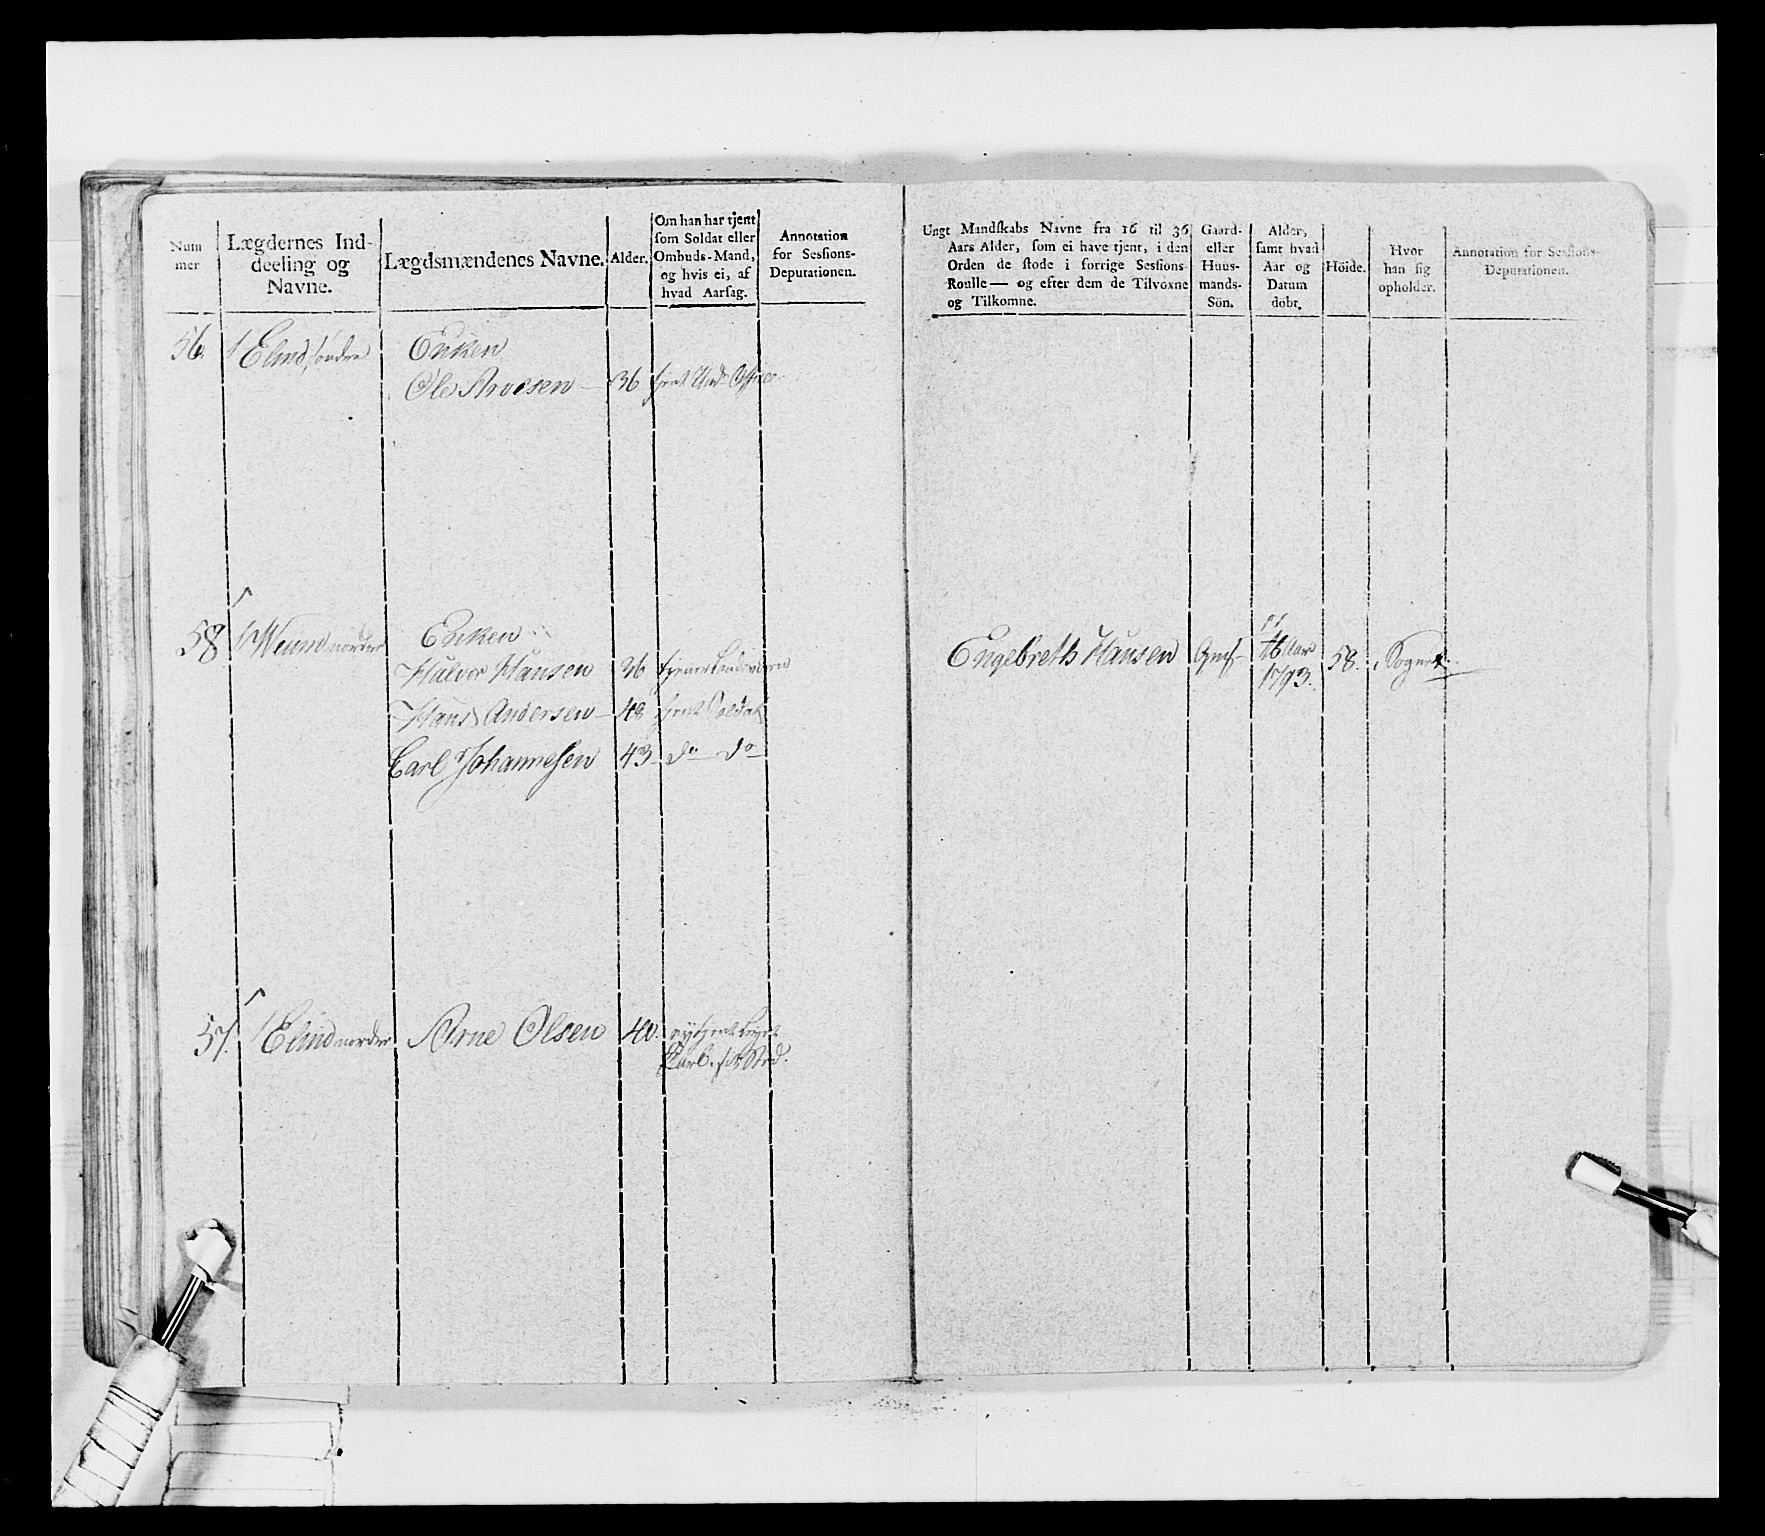 Num
mer
Lægdernes Ind-
deeling og
Navne.
Lægdsmændenes Navne.
Alder.
Om han har tjent
som Soldat eller
Ombuds-Mand,
og hvis ei, af
hvad Aarsag.
Annotation
for Sessions-
Deputationen.
Ungt Mandskabs Navne fra 16 til 36
Aars Alder, som ei have tjent, i den
Orden de stode i forrige Sessions-
Roulle — og efter dem de Tilvoxne
og Tilkomne.
Gaard-
eller
Huus-
mands-
Sön.
Alder,
samt hvad
Aar og
Datum
döbt.
Höide.
Hvor
han sig
opholder.
Annotation for Sessions-
Deputationen.
56. 1 Elind söndre Enken
Ole Arvesen 36 tient Und. Officer
58 1 Weum nordre Enken
Halvor Hansen 36 tjener Landværn
Hans Andersen 48 tjent Soldat
Carl Johannesen 43 do do
Engebreth Hansen 16 Aar 1793. 58. Sognet
57. 1 Elind nordre Arne Olsen 40.